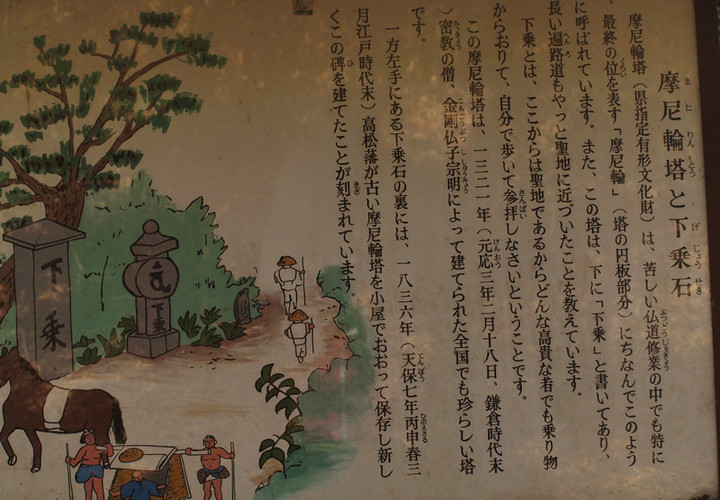 摩尼輪塔と下乗石
摩尼輪塔（県指定有形文化財）は、苦しい仏道修業の中でも特に
、最終の位を表す「摩尼輪」（塔の円板部分）にちなんでこのよう
に呼ばれています。また、この塔は、下に「下乗」と書いてあり、
長い遍路道もやっと聖地に近づいたことを教えています。
下乗とは、ここからは聖地であるからどんな高貴な者でも乗り物
からおりて、自分で歩いて参拝しなさいということです。
この摩尼輪塔は、一三二一年（元応三年二月十八日、鎌倉時代末
）密教の僧、金剛仏子宗明によって建てられた全国でも珍らしい塔
です。
一方左手にある下乗石の裏には、一八三六年（天保七年丙申春三
月江戸時代末）高松藩が古い摩尼輪塔を小屋でおおって保存し新し
くこの碑を建てたことが刻まれています。
下乗
下乗